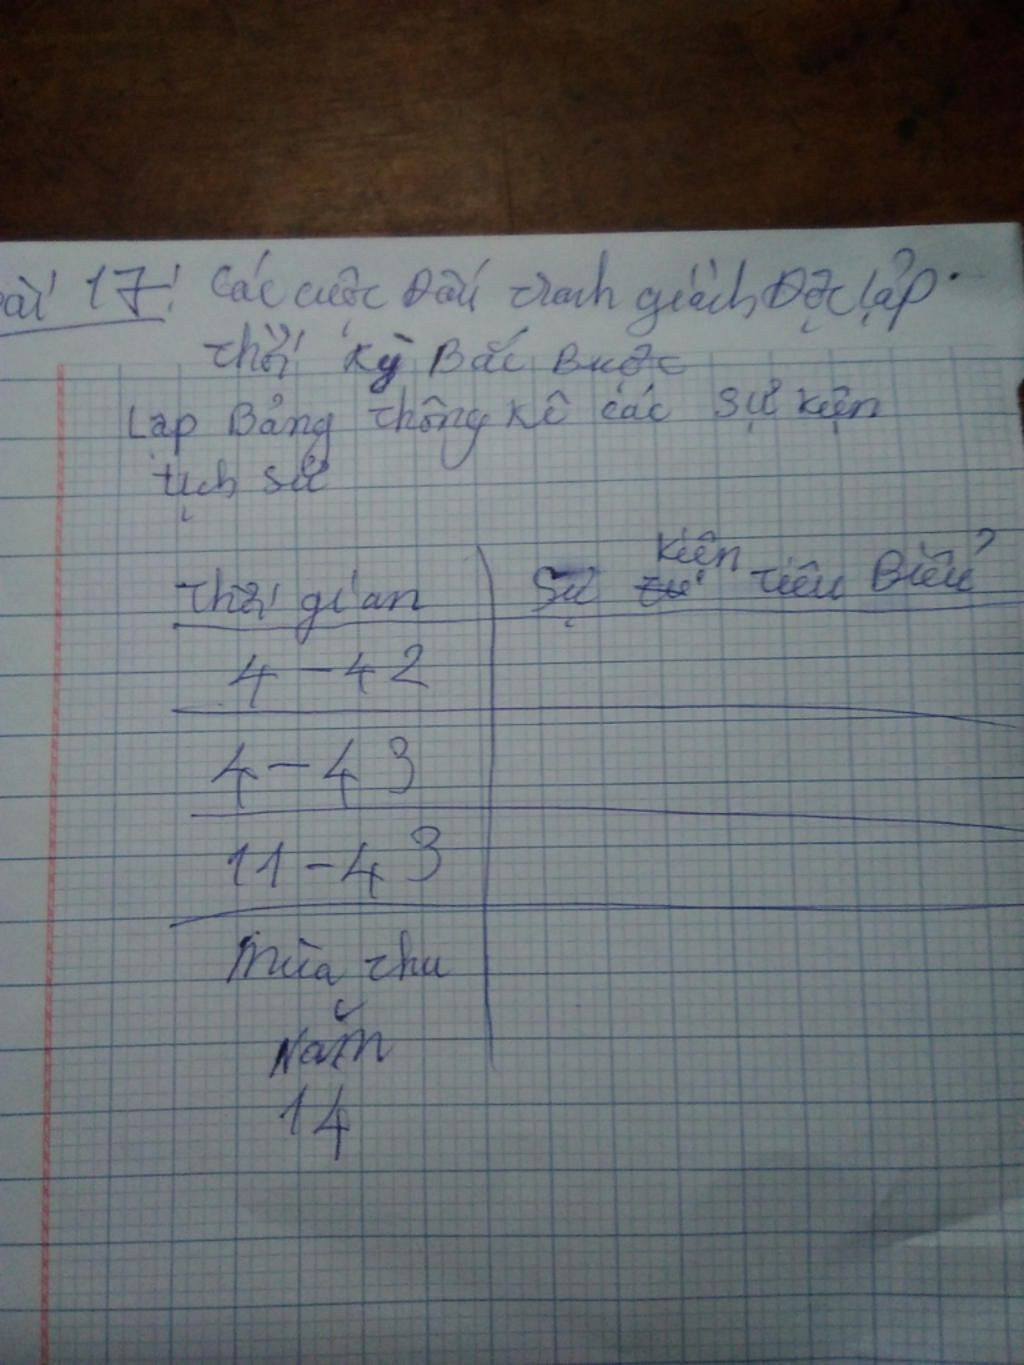 bài 17: Các cuộc Đấu tranh giành Độc lập
thời kỳ Bắc Buộc
Lạp Bảng thống kê các sự kiện
lịch sử
Thời gian
Sự kiện tiêu Biểu
4 - 42
4 - 43
11 - 43
Mùa thu
Năm
14